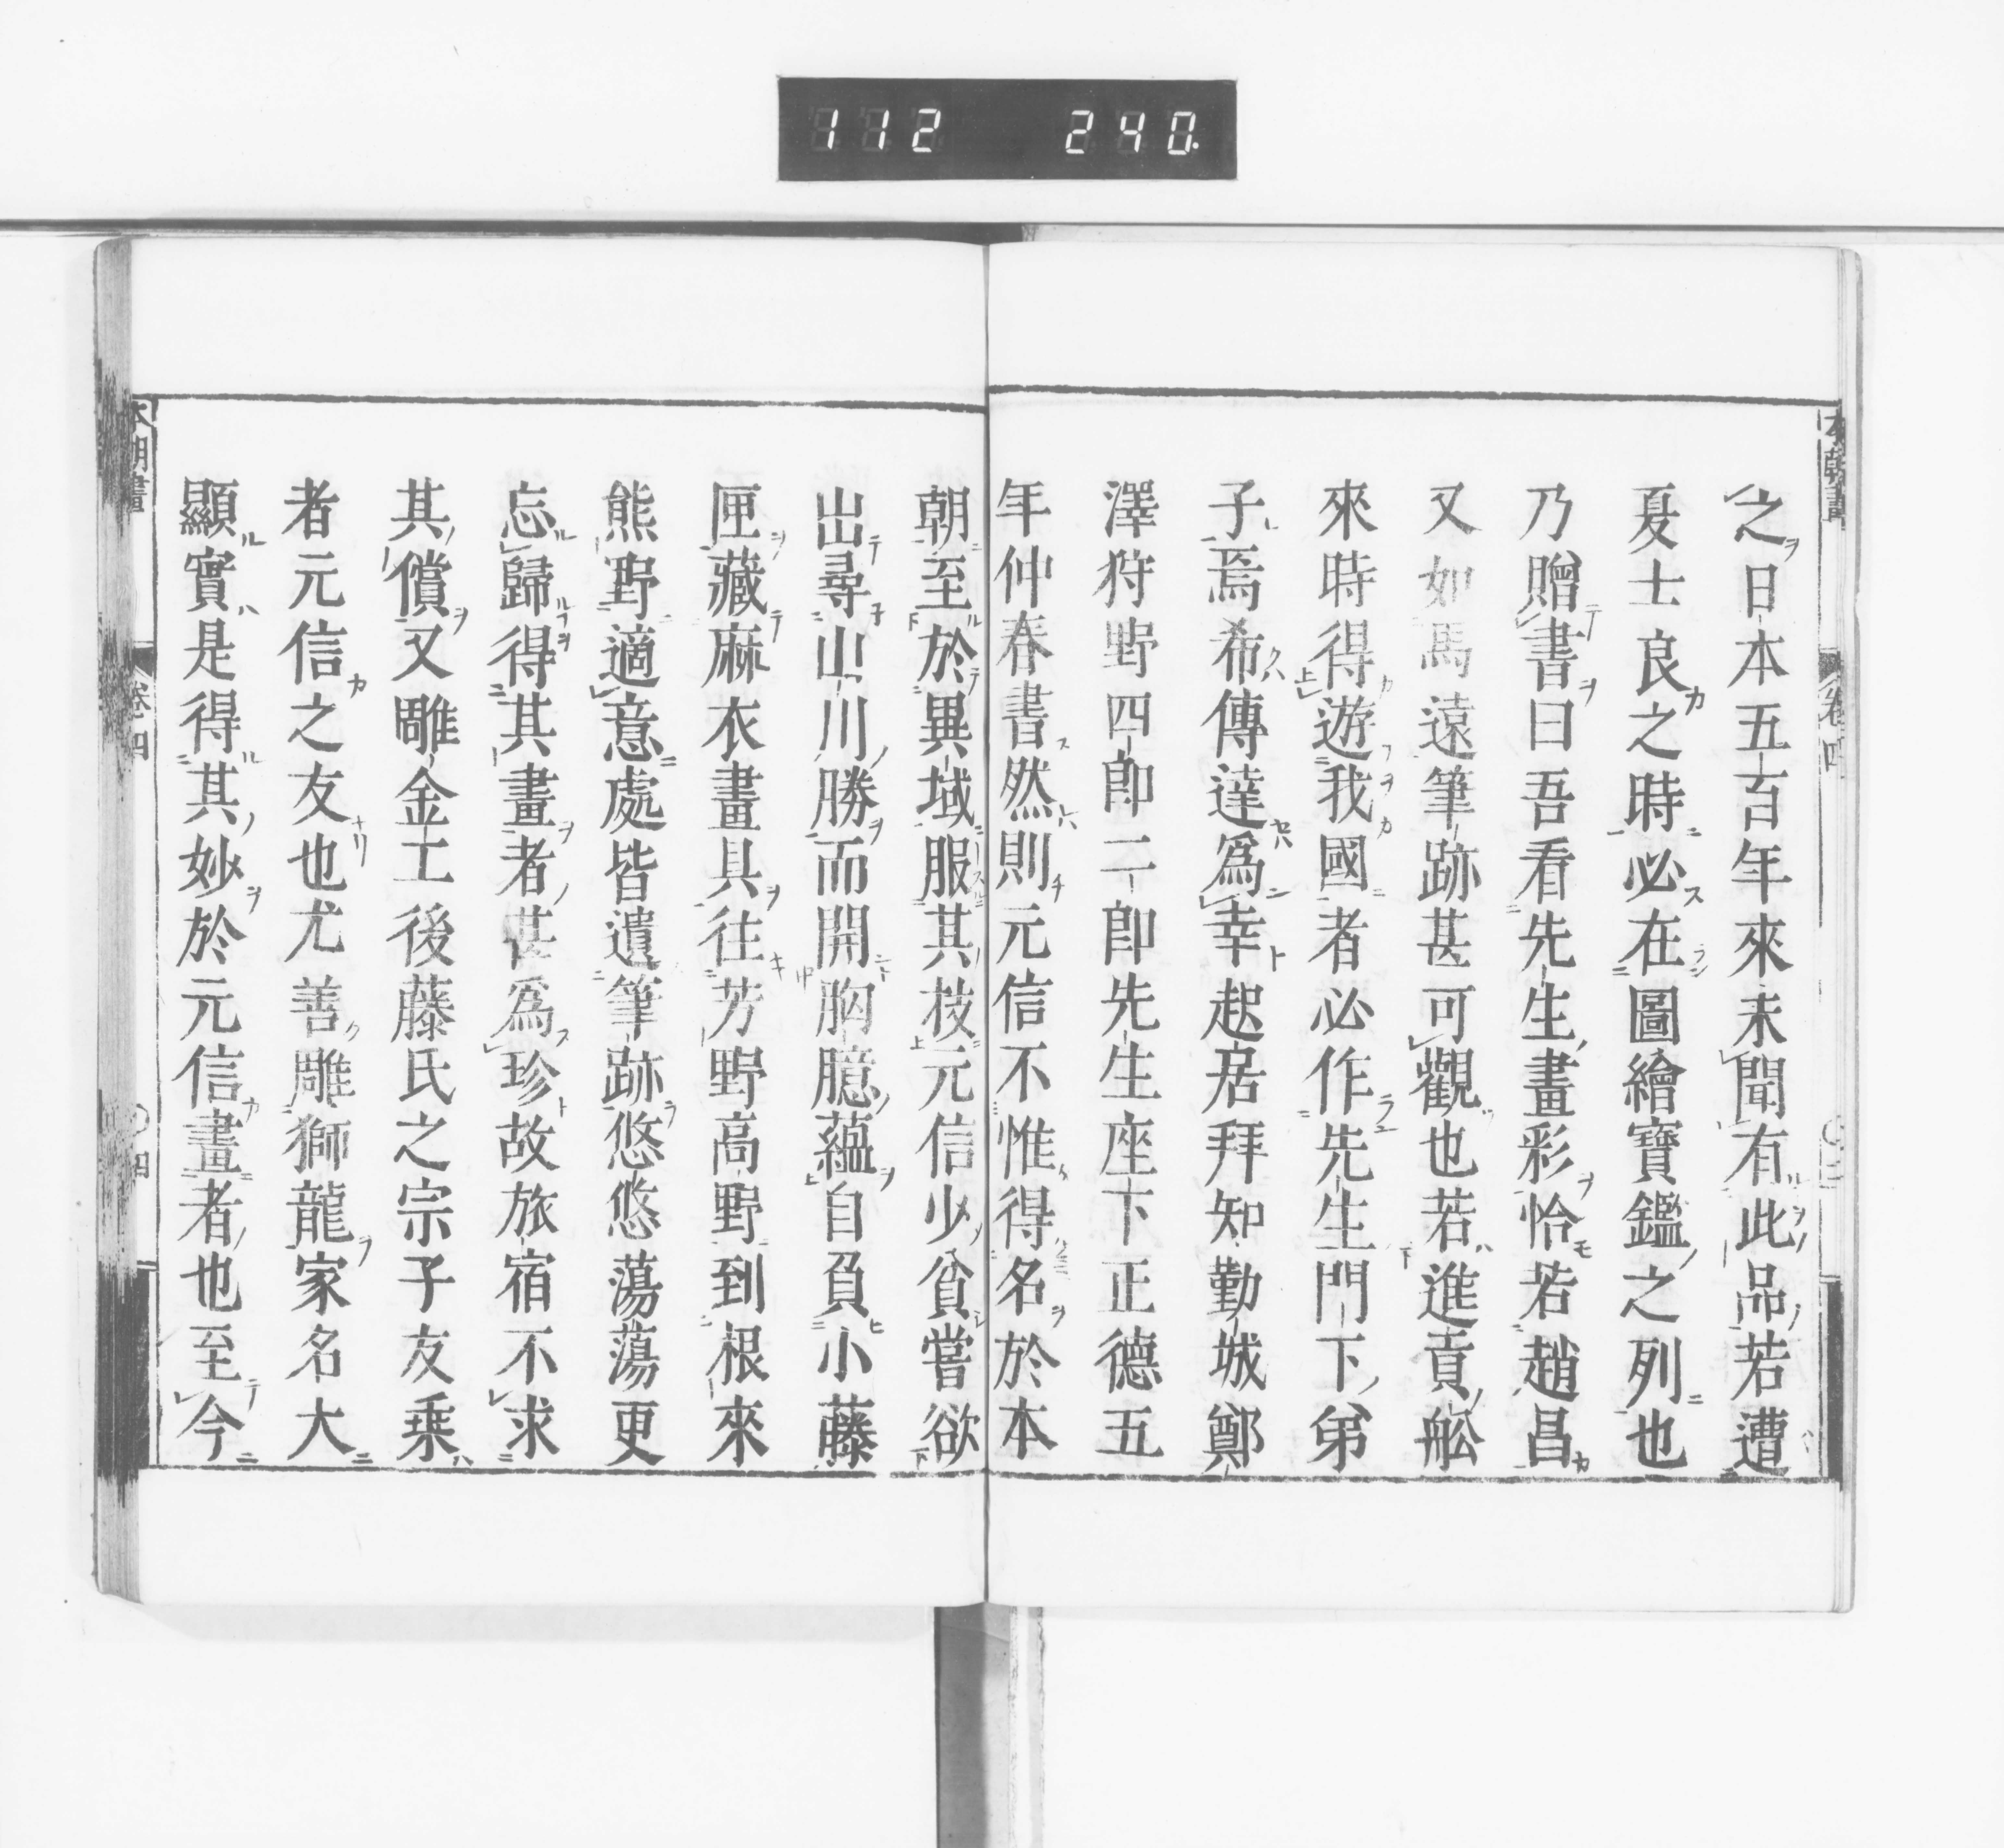 112 240.
之日本五百年來未聞有此品若遭
夏士良之時必在圖繪寶鑑之列也
乃贈書曰吾看先生畫彩恰若趙昌
又如馬遠筆跡甚可觀也若進貢舩
來時得遊我國者必作先生門下弟
子焉希傳達爲幸起居拜知勤城鄭
澤狩野四郎二郎先生座下正德五
年仲春書然則元信不惟得名於本
朝至於異域服其枝元信少貧嘗欲
出尋山川勝而開胸臆蘊自負小藤
匣藏麻衣畫具往芳野高野到根來
熊野適意處皆遺筆跡悠悠蕩蕩更
忘歸得其畫者甚爲珍故旅宿不求
其償又雕金工後藤氏之宗子友乗
者元信之友也尤善雕獅龍家名大
顯實是得其妙於元信畫者也至今
本朝畫 卷四